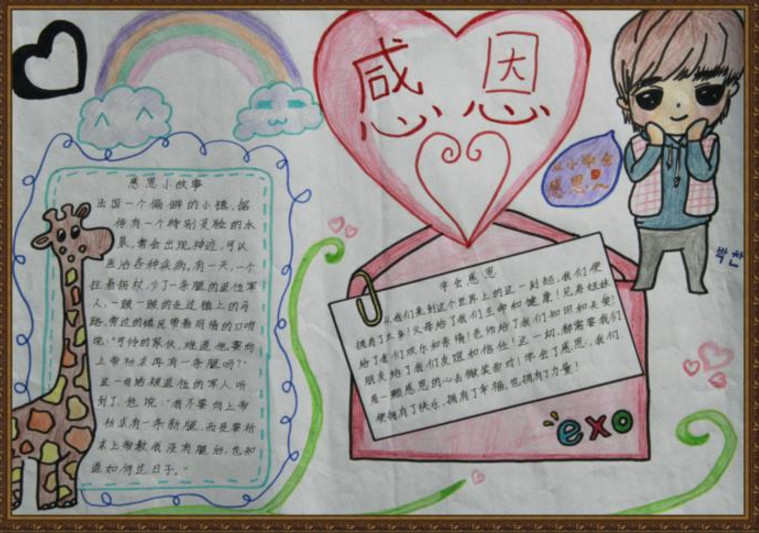 感恩
感恩小故事
出国一个偏僻的小镇,据
传有一个特别灵验的水
泉,常会出现神迹,可以
医治各种疾病。有一天,一个
拄着拐杖,少了一条腿的退伍军
人,一跛一跛的走过镇上的马
路,旁边的镇民带着同情的口吻
说:“可怜的家伙,难道他要向
上帝祈求再有一条腿吗?”
这一句话被退伍的军人听
到了,他说:“我不是要向上帝
祈求有一条新腿,而是要祈
求上帝教我没有腿后,也知
道如何过日子。”
从小学会
感恩
学会感恩
从我们来到这个世界上的这一刻起,我们便
拥有了生命!父母给了我们生命和健康!兄弟姐妹
给了我们欢乐和亲情!老师给了我们知识和关爱!
朋友给了我们友谊和信任!这一切,都需要我们
用一颗感恩的心去微笑面对!学会了感恩,我们
便拥有了快乐,拥有了幸福,也拥有了力量!
exo
박찬